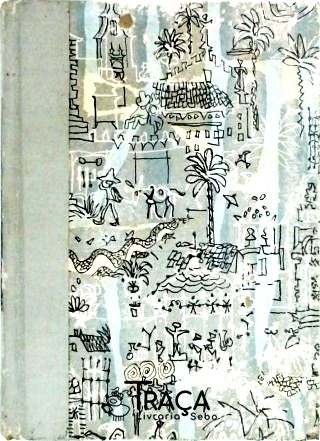 TRAÇA
Livraria Sebo